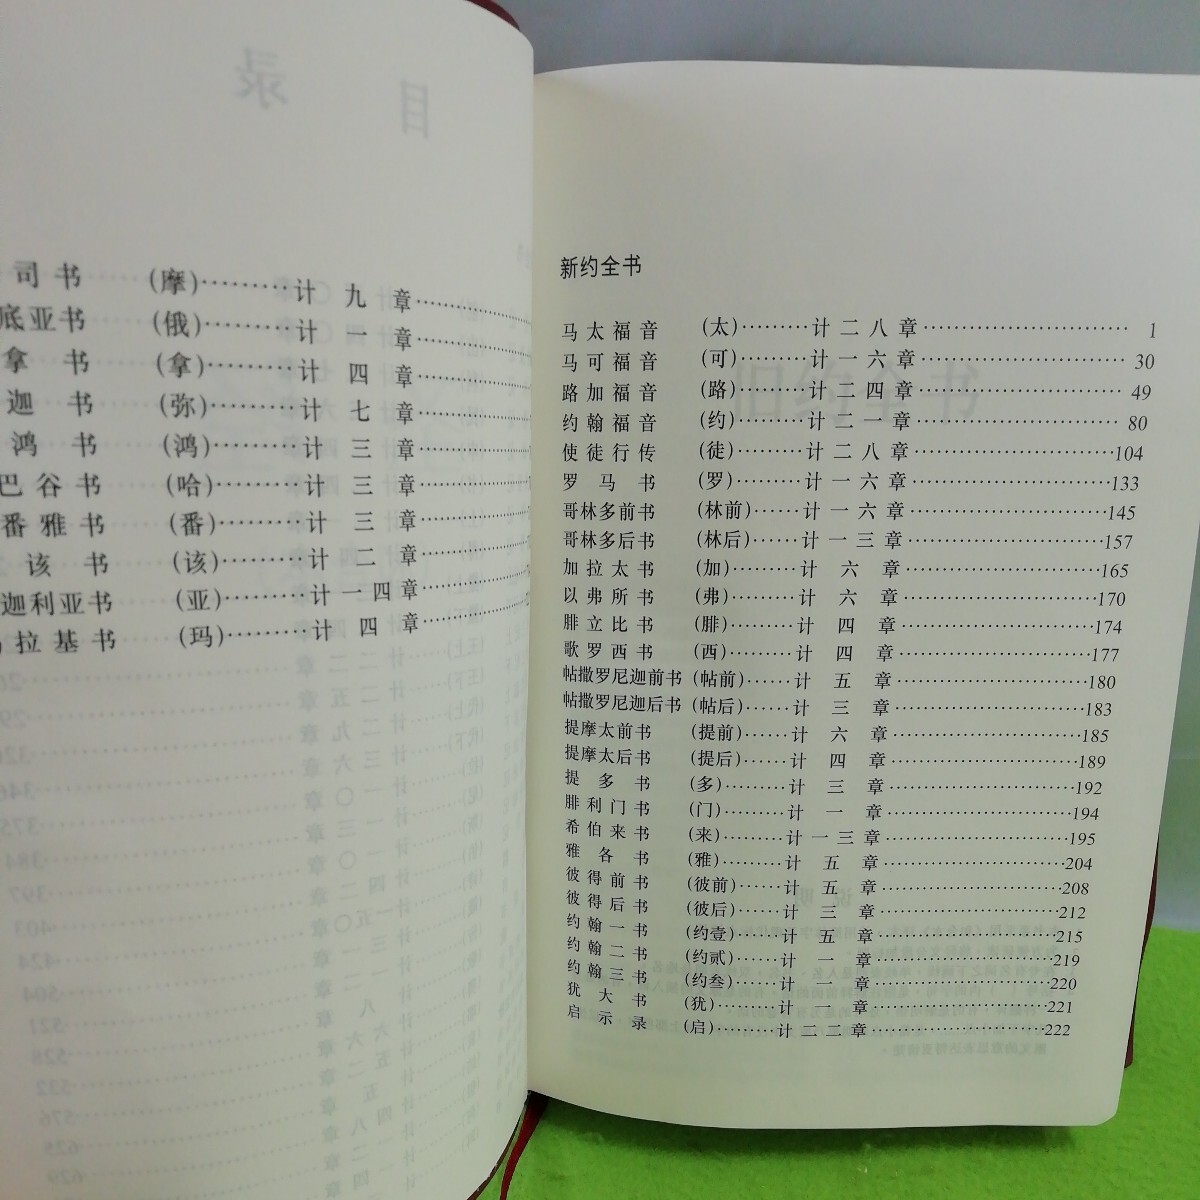 司书 (摩)………计 九 章
底亚书 (俄)………计 一 章
拿 书 (拿)………计 四 章
迦 书 (弥)………计 七 章
鸿 书 (鸿)………计 三 章
巴谷书 (哈)………计 三 章
番雅书 (番)………计 三 章
该 书 (该)………计 二 章
迦利亚书 (亚)………计一四章
拉基书 (玛)………计 四 章
新约全书
马太福音 (太)………计二八章………1
马可福音 (可)………计一六章………30
路加福音 (路)………计二四章………49
约翰福音 (约)………计二一章………80
使徒行传 (徒)………计二八章………104
罗马书 (罗)………计一六章………133
哥林多前书 (林前)……计一六章………145
哥林多后书 (林后)……计一三章………157
加拉太书 (加)………计 六 章………165
以弗所书 (弗)………计 六 章………170
腓立比书 (腓)………计 四 章………174
歌罗西书 (西)………计 四 章………177
帖撒罗尼迦前书 (帖前)……计 五 章………180
帖撒罗尼迦后书 (帖后)……计 三 章………183
提摩太前书 (提前)……计 六 章………185
提摩太后书 (提后)……计 四 章………189
提多书 (多)………计 三 章………192
腓利门书 (门)………计 一 章………194
希伯来书 (来)………计一三章………195
雅各书 (雅)………计 五 章………204
彼得前书 (彼前)……计 五 章………208
彼得后书 (彼后)……计 三 章………212
约翰一书 (约壹)……计 五 章………215
约翰二书 (约贰)……计 一 章………219
约翰三书 (约叁)……计 一 章………220
犹大书 (犹)………计 一 章………221
启示录 (启)………计二二章………222